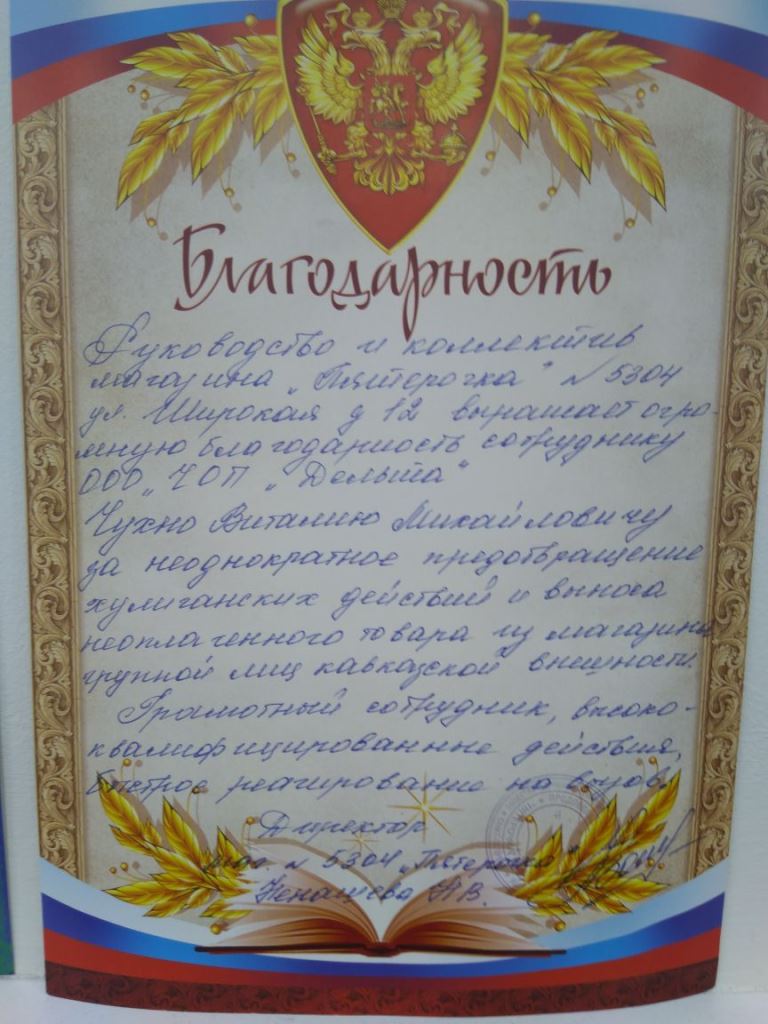 Благодарность
Руководство и коллектив
магазина „Пятёрочка" N 5304
ул. Широкая д 12 выражает огро-
мную благодарность сотруднику
ООО „ЧОП „Дельта"
Чухно Виталию Михайловичу
за неоднократное предотвращение
хулиганских действий и выноса
неоплаченного товара из магазина
группой лиц кавказской внешности.
Грамотный сотрудник, высоко-
квалифицированные действия,
быстрое реагирование на вызов.
Директор
маг. N 5304 „Пятерочка"
Ненашева Н.В.